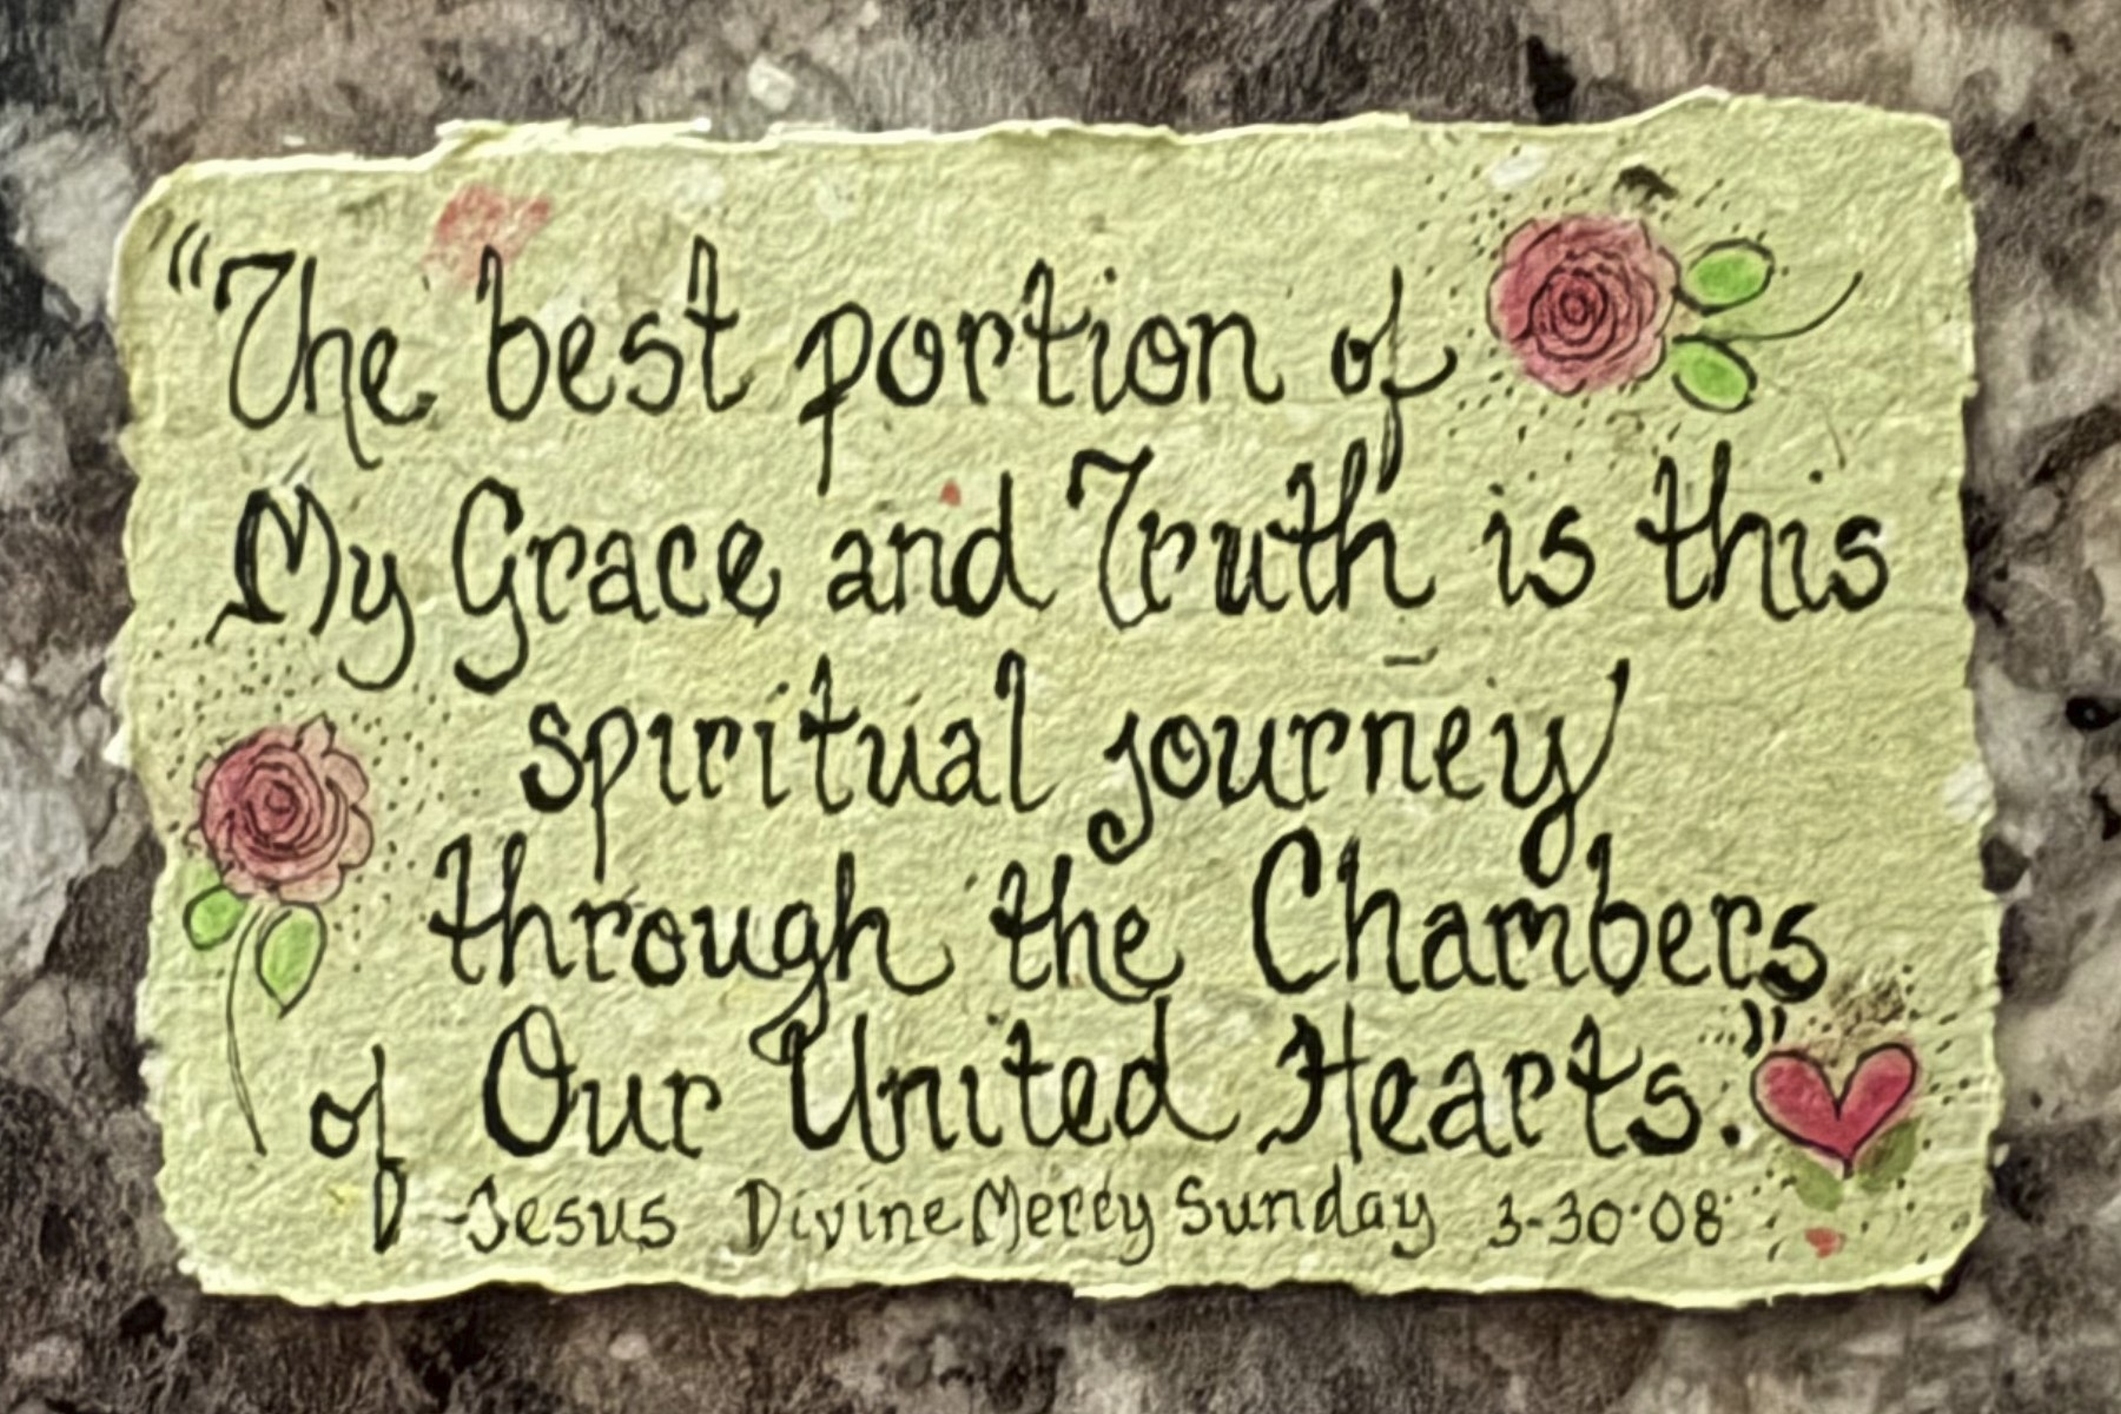 "The best portion of
My Grace and Truth is this
spiritual journey
through the Chambers
of Our United Hearts."
-Jesus Divine Mercy Sunday 3-30-08